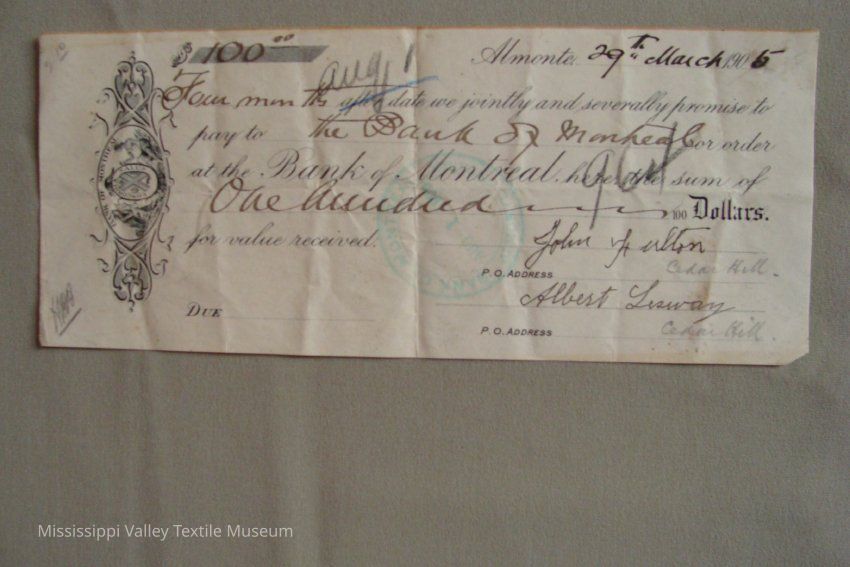 $ 100.00 Almonte. 29th March 1905
Aug 1
Four months after date we jointly and severally promise to
pay to the Bank of Montreal or order
at the Bank of Montreal, here, the sum of
One hundred 100 Dollars.
for value received. John Fulton
P.O. ADDRESS Cedar Hill.
Albert
DUE
P.O. ADDRESS Cedar Hill.
Mississippi Valley Textile Museum